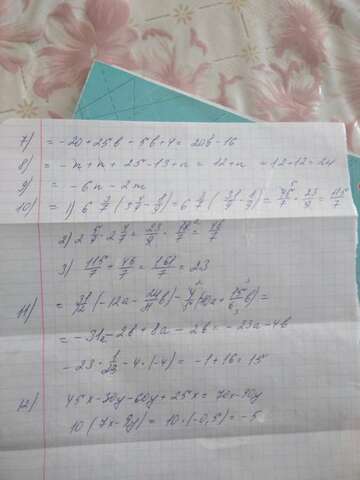 7) = -20+25b - 5b+4 = 20b-16
8) = -n+n+25-13+n = 12+n =12+12=24
9) = -6n-2m
10) = 1) 6 3/7 = 45/7 · 23/9 = 115/7
2) 2 5/7 · 2 = 23/9
3) 115/7 + 46/7 = 161/7 = 23
11) = 31/12 (-12a - 24/31 b) - 4/5
= -31a - 2b + 8a - 2b = -23a - 4b
-23 · 1/23 - 4·(-4) = -1+16 = 15
12) 45x-30y-60y+25x = 70x-90y
10(7x-9y) = 10·(-0,5) = -5